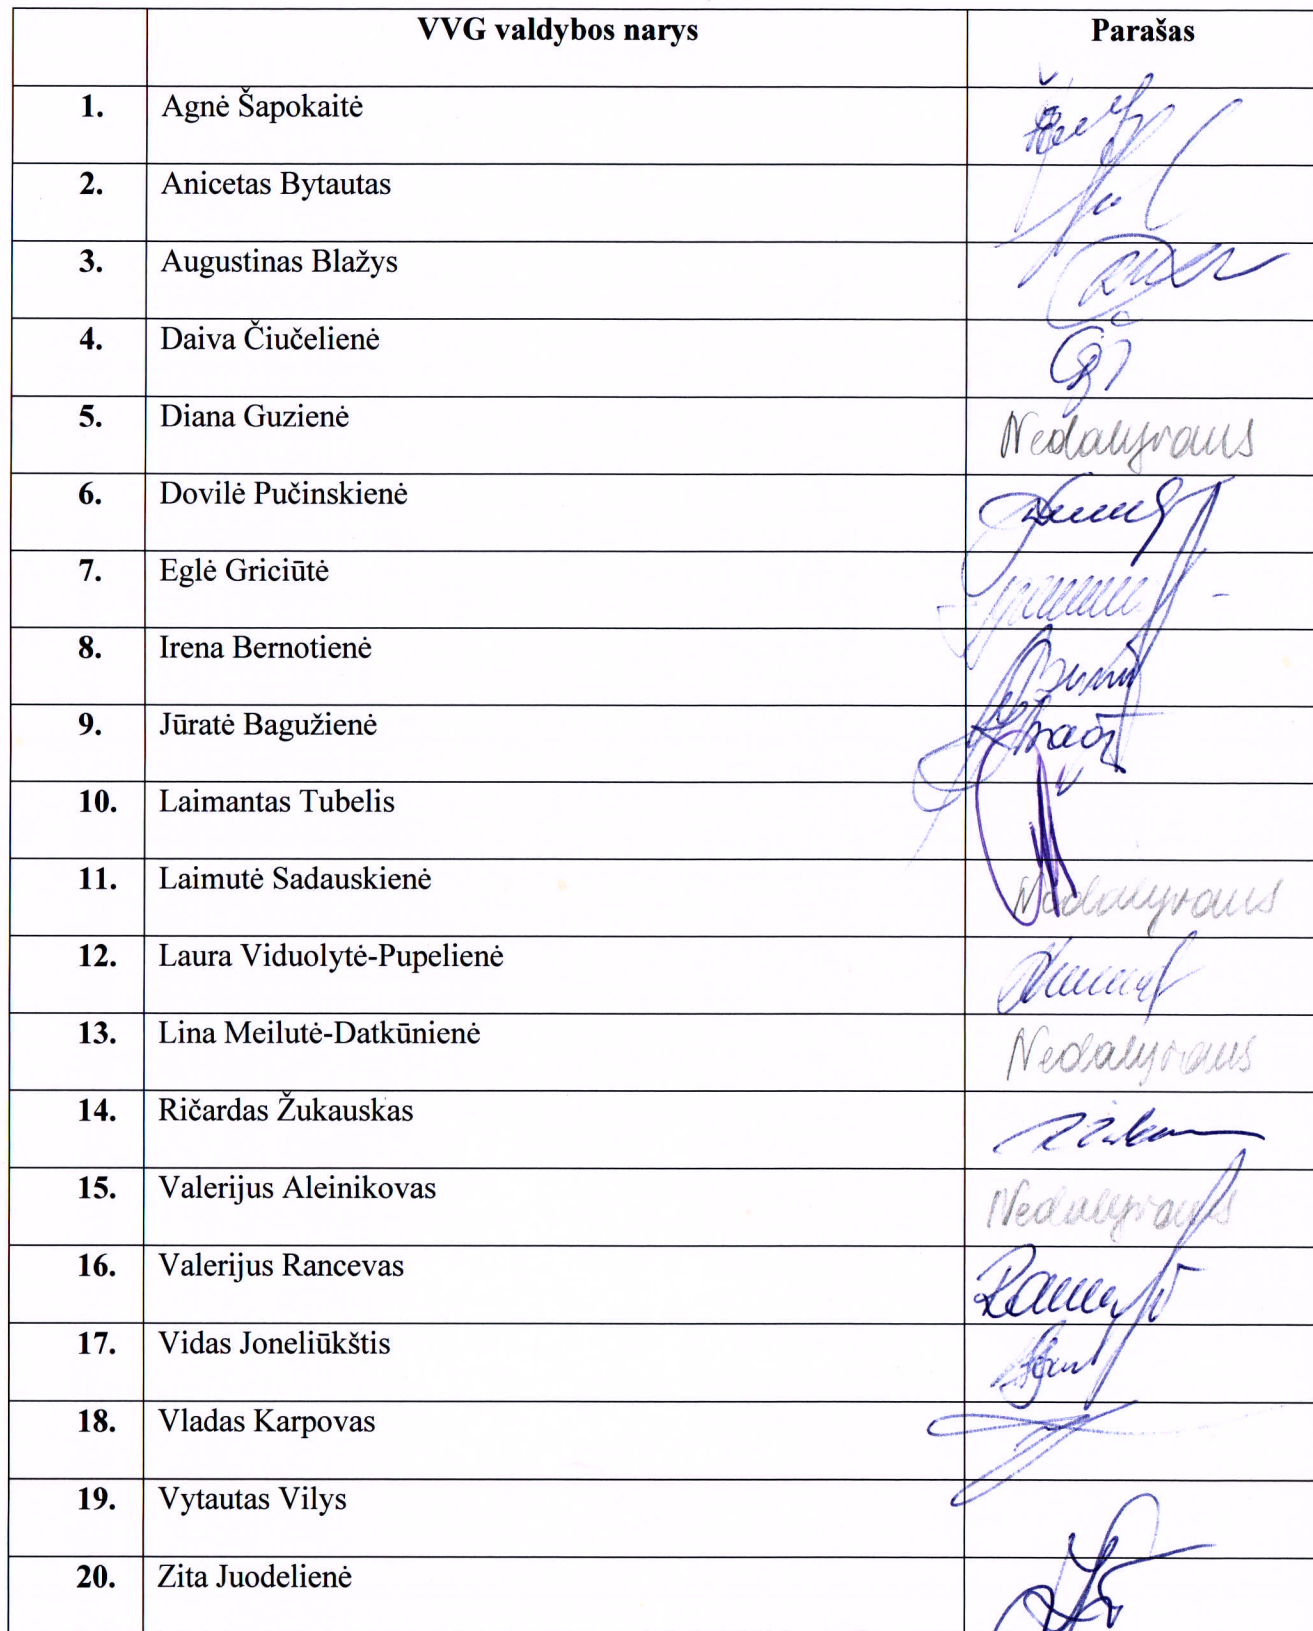 VVG valdybos narys Parašas
1. Agnė Šapokaitė
2. Anicetas Bytautas
3. Augustinas Blažys
4. Daiva Čiučelienė
5. Diana Guzienė Nedalyvaus
6. Dovilė Pučinskienė
7. Eglė Griciūtė
8. Irena Bernotienė
9. Jūratė Bagužienė
10. Laimantas Tubelis
11. Laimutė Sadauskienė Nedalyvaus
12. Laura Viduolytė-Pupelienė
13. Lina Meilutė-Datkūnienė Nedalyvaus
14. Ričardas Žukauskas
15. Valerijus Aleinikovas Nedalyvaus
16. Valerijus Rancevas
17. Vidas Joneliūkštis
18. Vladas Karpovas
19. Vytautas Vilys
20. Zita Juodelienė